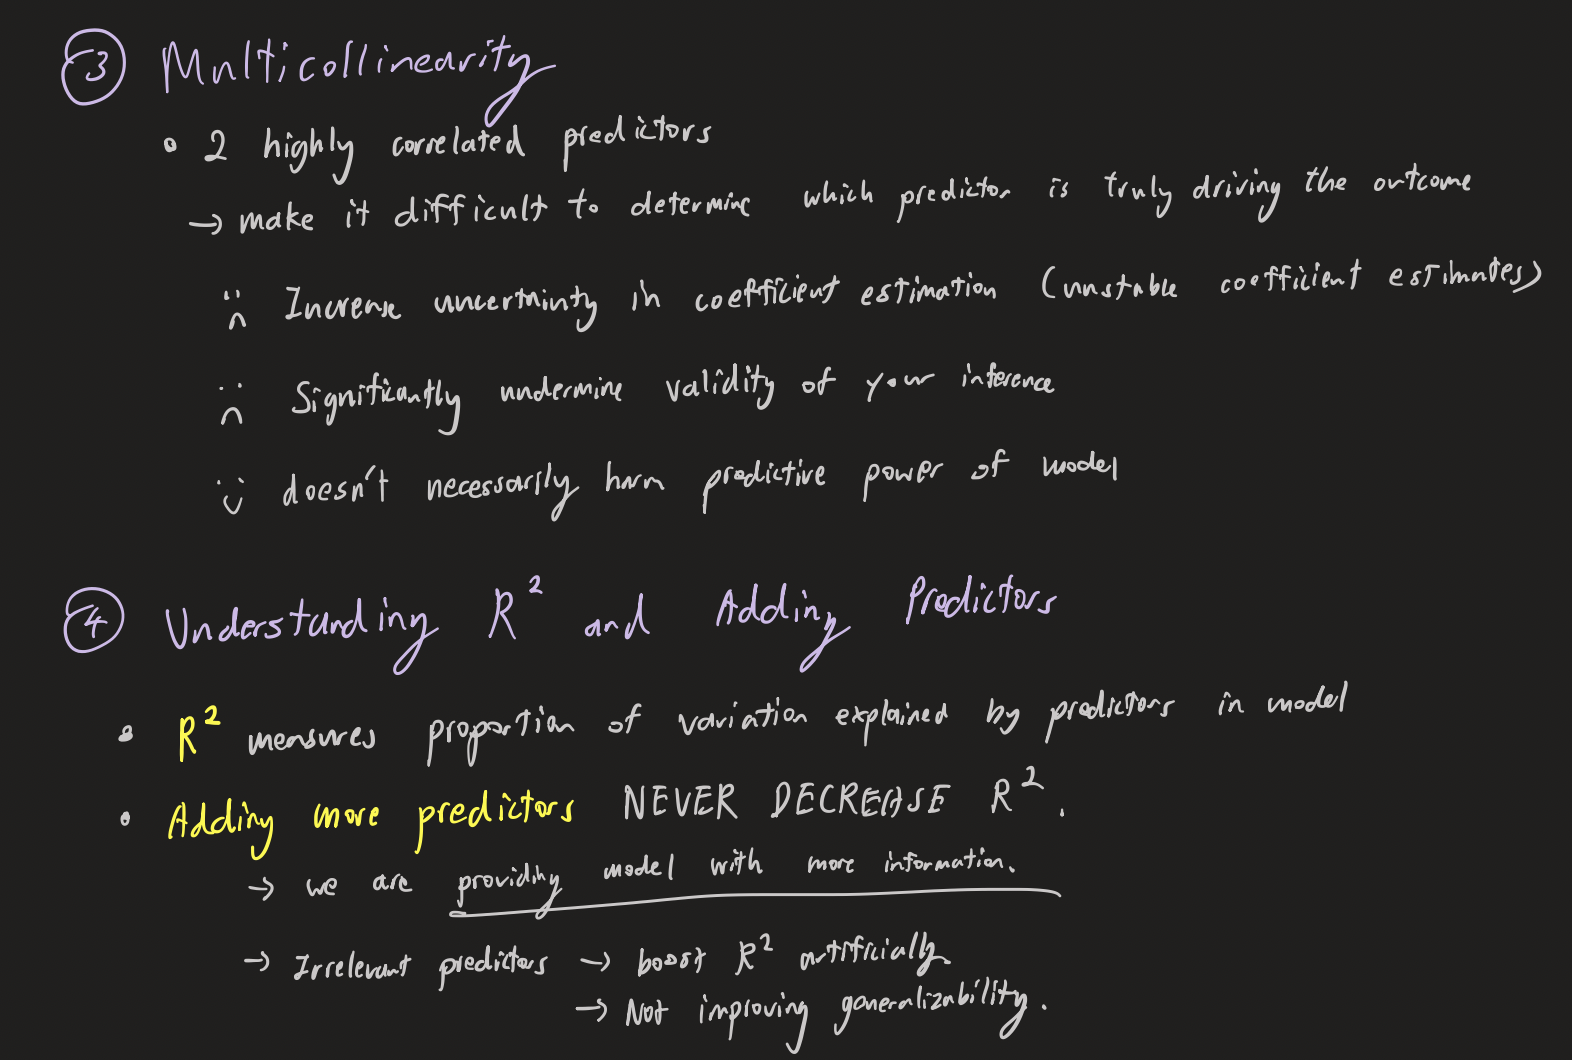 ③ Multicollinearity
• 2 highly correlated predictors
→ make it difficult to determine which predictor is truly driving the outcome
:( Increase uncertainty in coefficient estimation (unstable coefficient estimates)
:( Significantly undermine validity of your inference
:) doesn't necessarily harm predictive power of model
④ Understanding R² and Adding Predictors
• R² measures proportion of variation explained by predictors in model
• Adding more predictors NEVER DECREASE R².
→ we are providing model with more information.
→ Irrelevant predictors → boost R² artificially
→ Not improving generalizability.